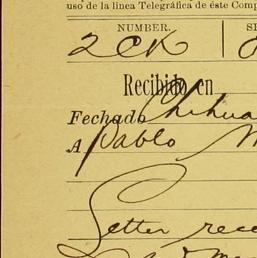 uso de la linea Telegráfica de éste Comp
NUMBER.
2CK
Recibido en
Fechado Chihua
A Pablo M
Letter rece